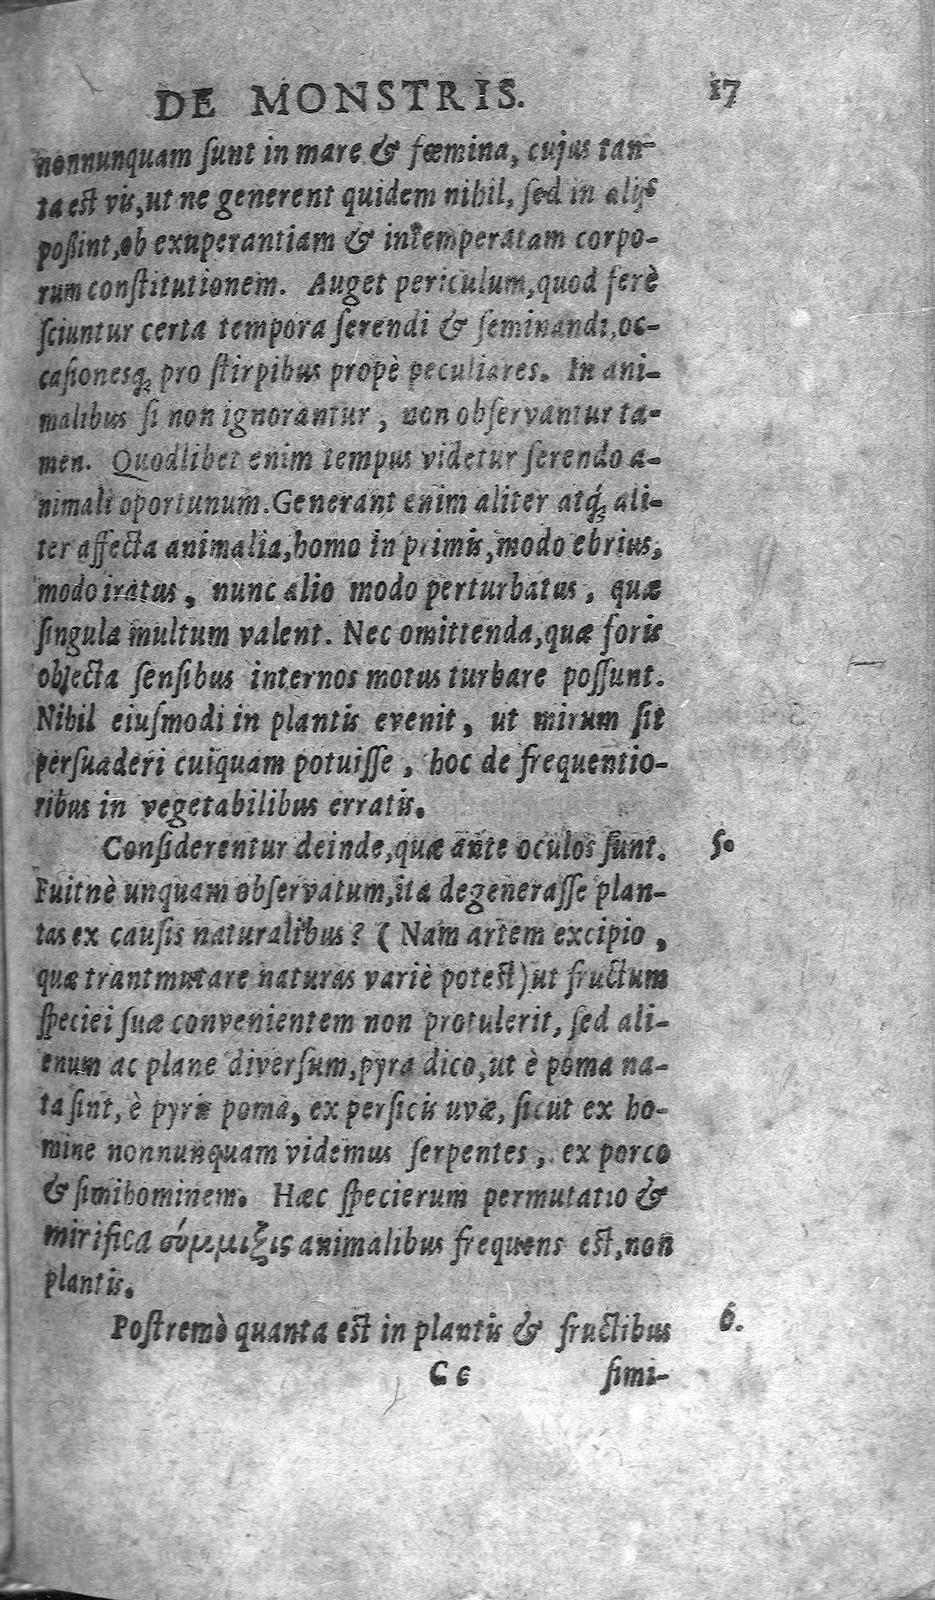 DE MONSTRIS. 17
nonnunquam ſunt in mare & fœmina, cujus tan-
ta est vis, ut ne generent quidem nihil, ſed in alijs
poßint, ob exuperantiam & intemperatam corpo-
rum conſtitutionem. Auget periculum, quod ferè
ſciuntur certa tempora ſerendi & ſeminandi, oc-
caſionesq; pro ſtirpibus propè peculiares. In ani-
malibus ſi non ignorantur, non obſervantur ta-
men. Quodlibet enim tempus videtur ſerendo a-
nimali oportunum. Generant enim aliter atq́; ali-
ter affecta animalia, homo in primis, modo ebrius,
modo iratus, nunc alio modo perturbatus, quæ
ſingula multum valent. Nec omittenda, quæ foris
objecta ſenſibus internos motus turbare poſſunt.
Nihil eiuſmodi in plantis evenit, ut mirum ſit
perſuaderi cuiquam potuiſſe, hoc de frequentio-
ribus in vegetabilibus erratis.
Conſiderentur deinde, quæ ante oculos ſunt. 5.
Fuitnè unquam obſervatum, ita degeneraſſe plan-
tas ex cauſis naturalibus? (Nam artem excipio,
quæ trantmutare naturas variè potest) ut fructum
ſpeciei ſuæ convenientem non protulerit, ſed ali-
enum ac plane diverſum, pyra dico, ut è poma na-
ta ſint, è pyris poma, ex perſicis uvæ, ſicut ex ho-
mine nonnunquam videmus ſerpentes, ex porco
& ſimihominem. Hæc ſpecierum permutatio &
mirifica σύμμιξις animalibus frequens est, non
plantis.
Poſtremò quanta est in plantis & fructibus 6.
C c ſimi-